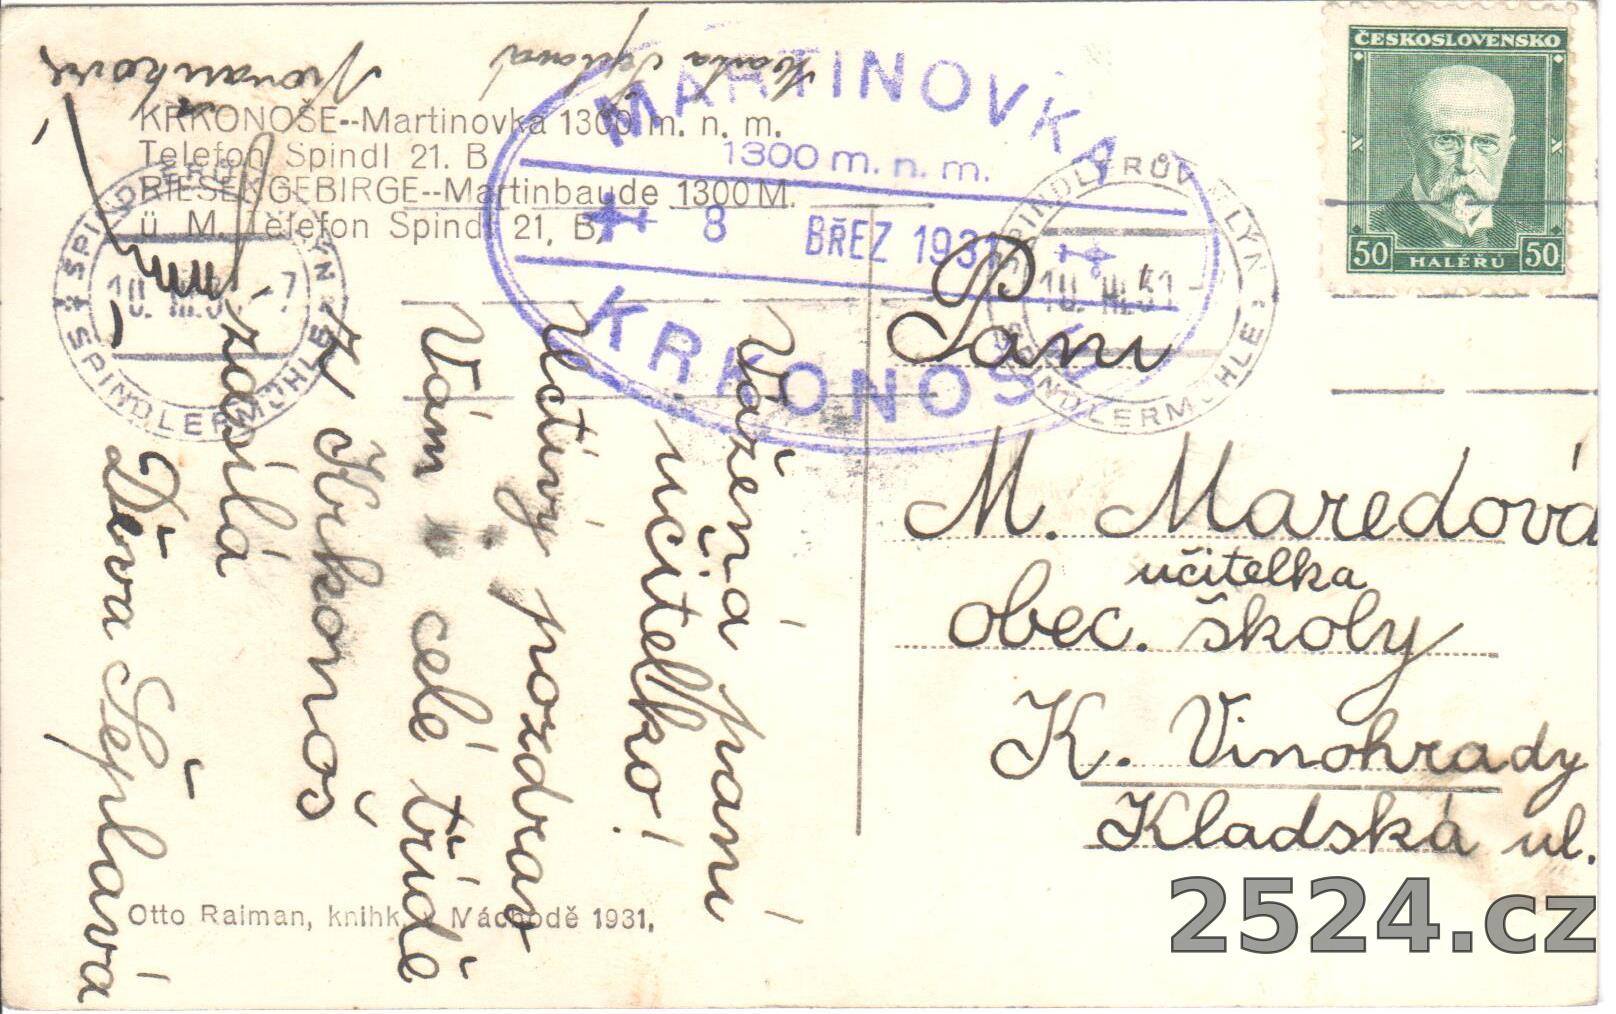 KRKONOŠE--Martinovka 1300 m. n. m.
Telefon Spindl 21. B
RIESENGEBIRGE--Martinbaude 1300 M.
ü M. Telefon Spindl 21, B,
MARTINOVKA
1300 m. n. m.
8 BŘEZ 1931
KRKONOŠE
ŠPINDLERŮV MLÝN
10. III. 31 -7
SPINDLERMÜHLE
ŠPINDLERŮV MLÝN
10. III. 31
SPINDLERMÜHLE
ČESKOSLOVENSKO
50 HALÉŘŮ 50
Vážená paní
učitelko!
Uctivý pozdrav
Vám i celé třídě
z Krkonoš
zasílá
Paní
M. Maredová
učitelka
obec. školy
K. Vinohrady
Kladská ul.
Otto Raiman, knihk. v Náchodě 1931.
2524.cz